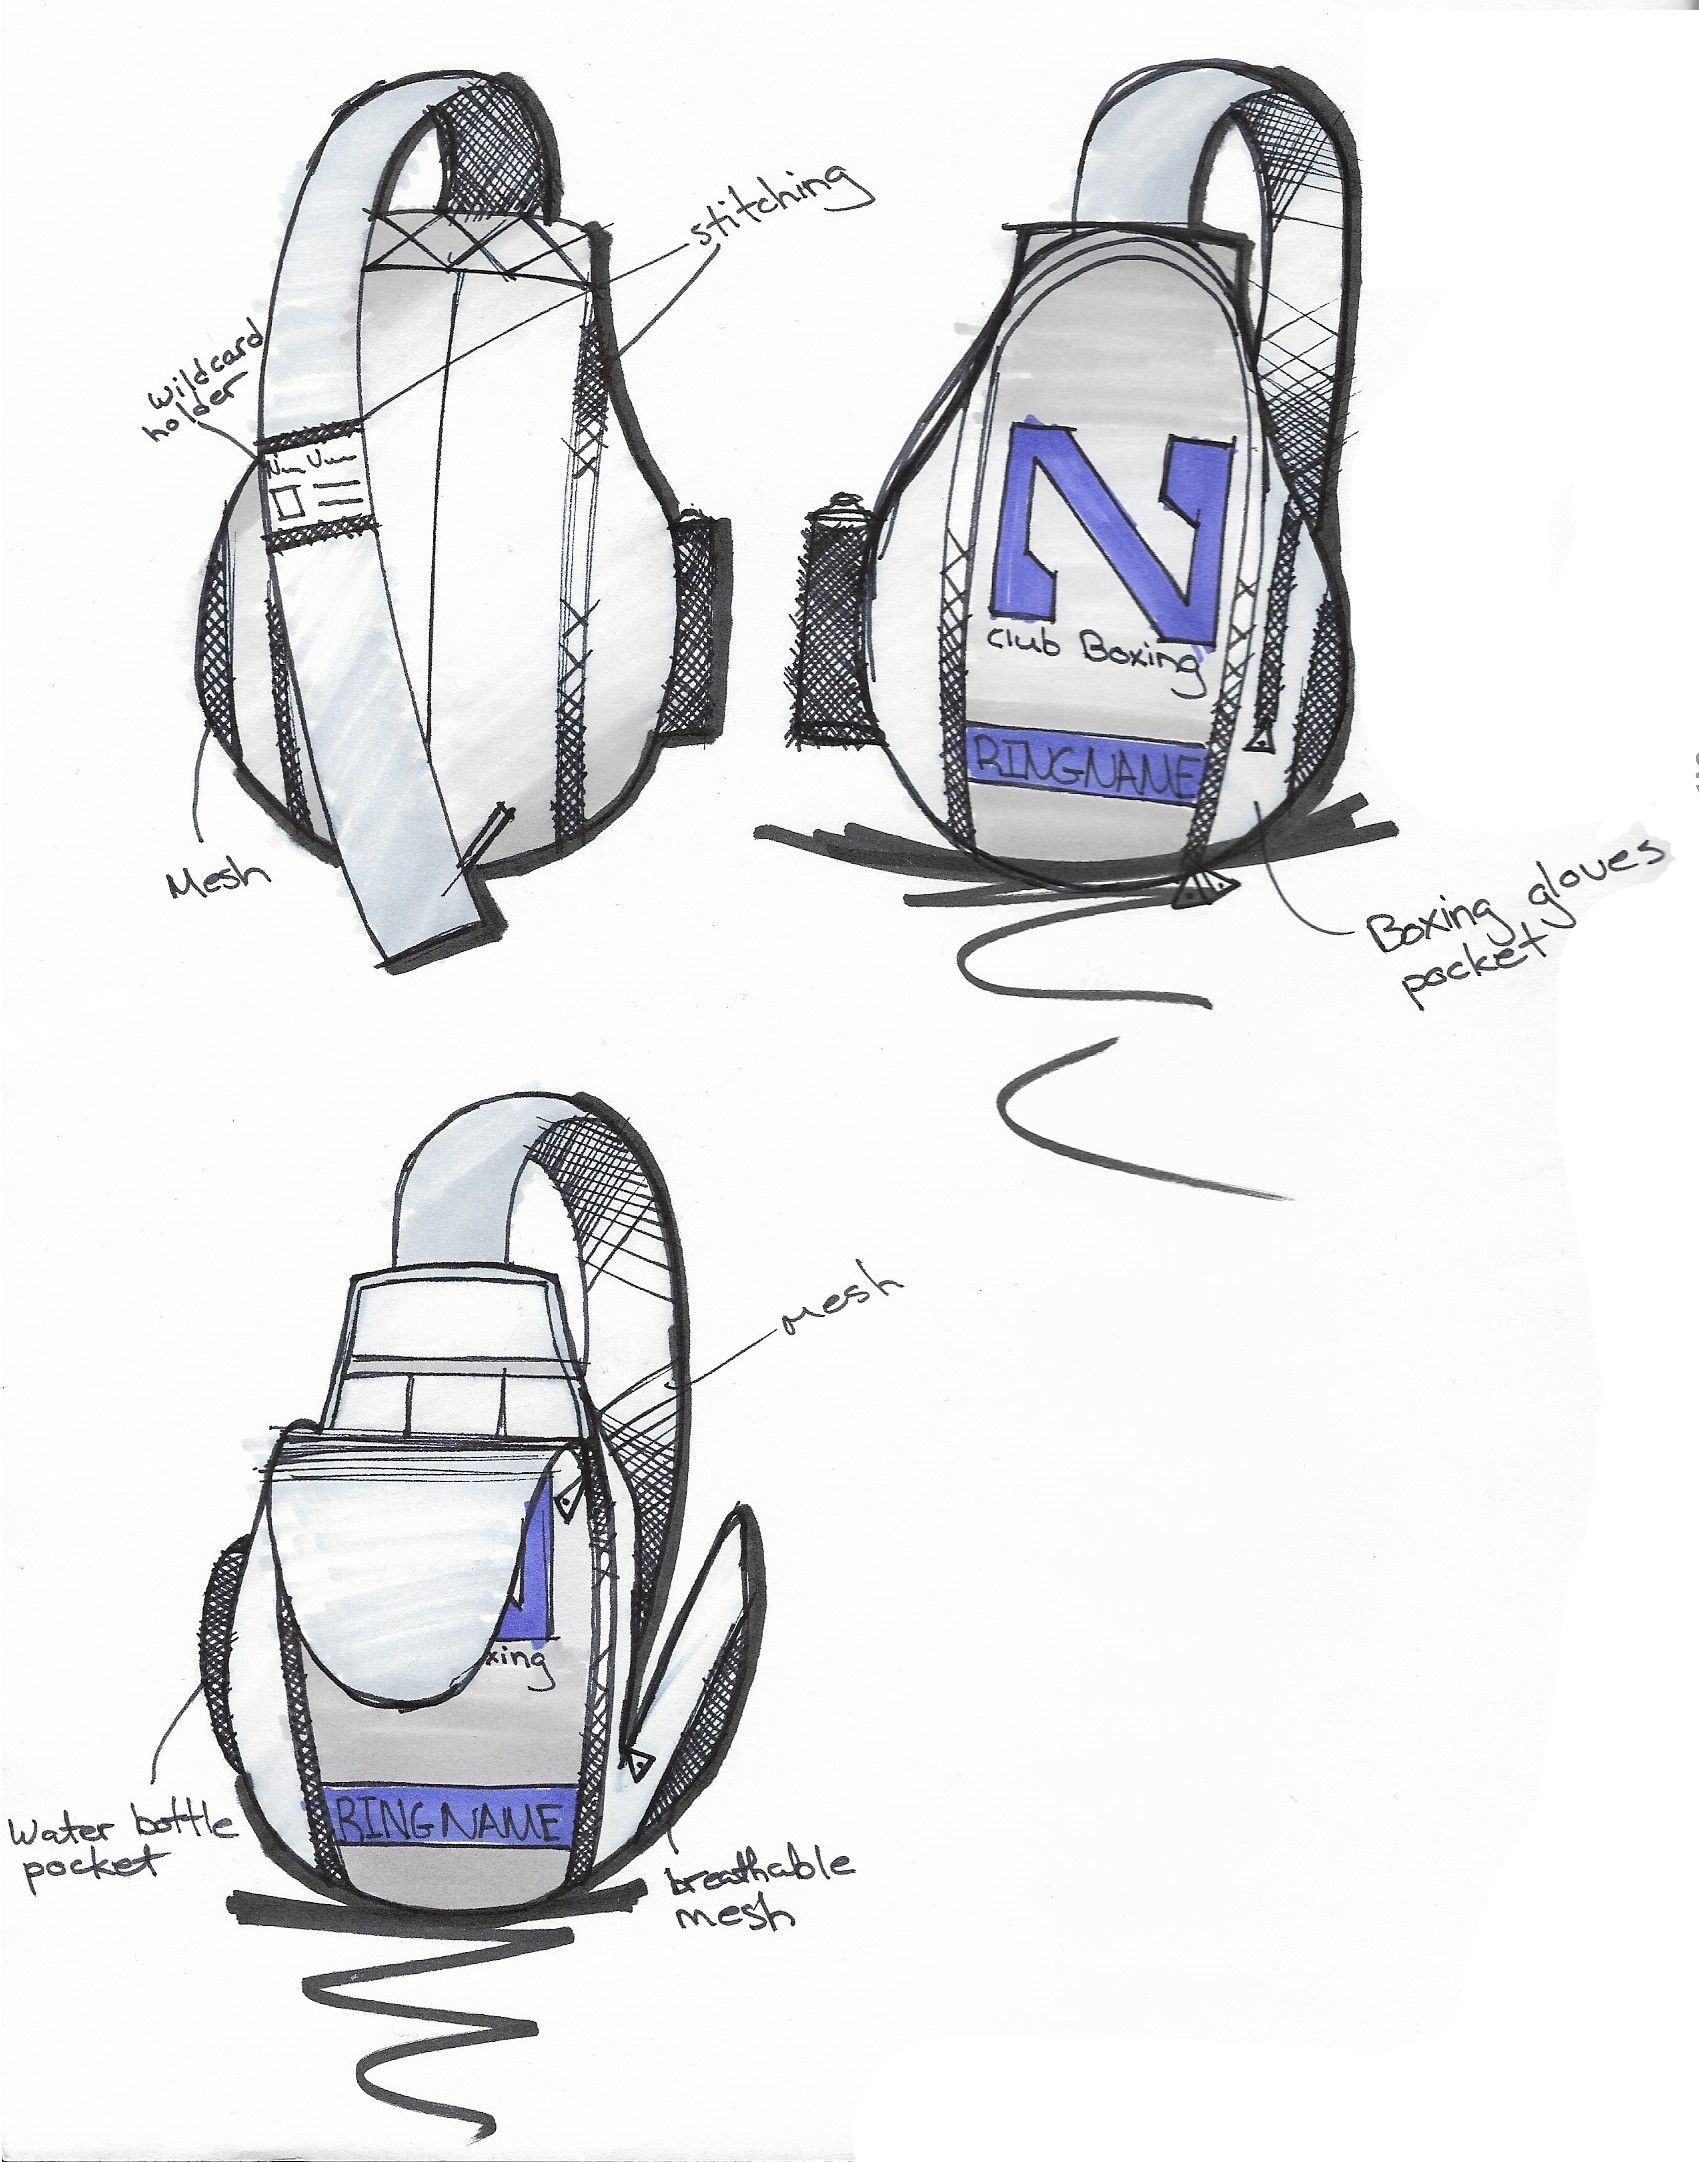 stitching
Wildcard
holder
N
club Boxing
RINGNAME
Mesh
Boxing gloves
pocket
mesh
N
xing
RINGNAME
Water bottle
pocket
breathable
mesh